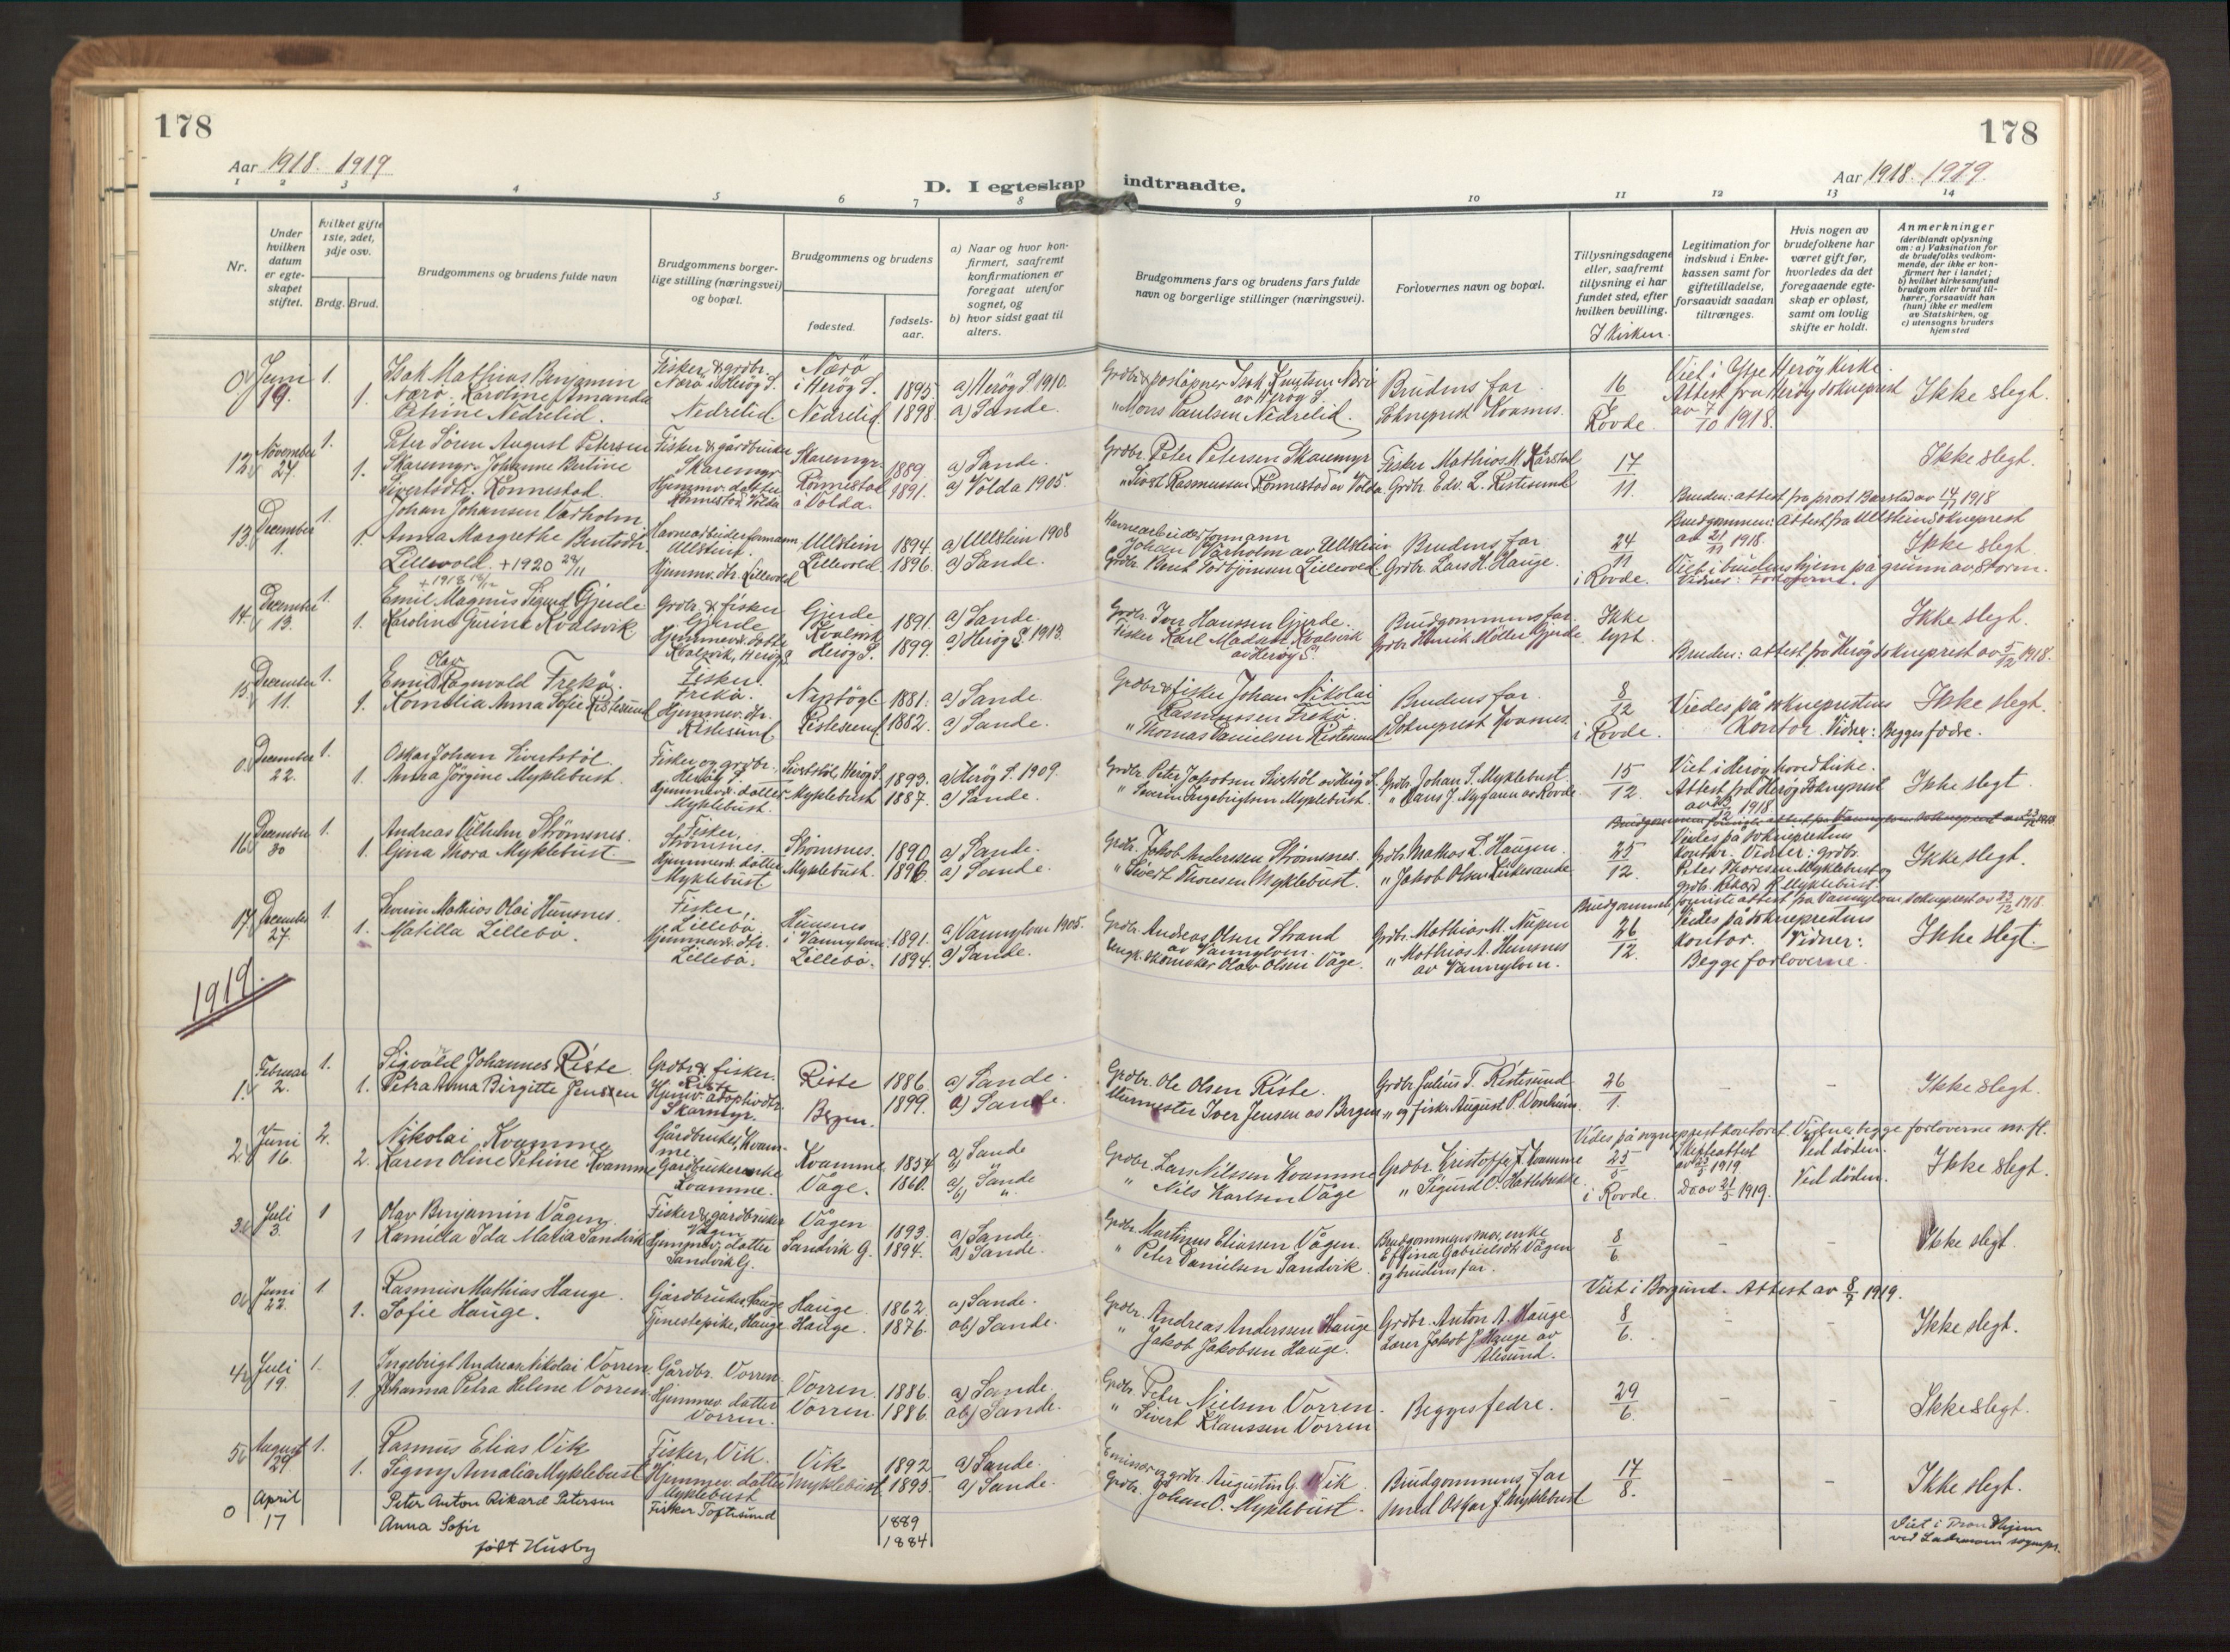 178
178
Aar 1918. 1919
D. I egteskap indtraadte.
Aar 1918. 1919.
1 2 3 4 5 6 7 8 9 10 11 12 13 14
Nr.
Under hvilken datum er egteskapet stiftet.
Hvilket gifte 1ste, 2det, 3dje osv.
Brdg. Brud.
Brudgommens og brudens fulde navn
Brudgommens borgerlige stilling (næringsvei) og bopæl.
Brudgommens og brudens
fødested.
fødselsaar.
a) Naar og hvor konfirmert, saafremt konfirmationen er foregaat utenfor sognet, og
b) hvor sidst gaat til alters.
Brudgommens fars og brudens fars fulde navn og borgerlige stillinger (næringsvei).
Forlovernes navn og bopæl.
Tillysningsdagene eller, saafremt tillysning ei har fundet sted, efter hvilken bevilling.
I Kirken.
Legitimation for indskud i Enkekassen samt for giftetilladelse, forsaavidt saadan tiltrænges.
Hvis nogen av brudefolkene har været gift før, hvorledes da det foregaaende egteskap er opløst, samt om lovlig skifte er holdt.
Anmerkninger
(deriblandt oplysning om: a) Vaksination for de brudefolks vedkommende, der ikke er konfirmert her i landet;
b) hvilket kirkesamfund brudgom eller brud tilhører, forsaavidt han (hun) ikke er medlem av Statskirken, og
c) utensogns bruders hjemsted
0 Juni 19. 1. Isak Mathias Benjamin Nærø. Fisker & grdbr. Nærø i Herøy S. Nærø i Herøy S. 1895. a) Herøy S 1910.
1. Karoline Amanda Petrine Nedrelid. Nedrelid Nedrelid 1898 a) Sande.
Grdbr. & poståpner Isak Knutsen Nærø av Herøy S. Brudens far. 16/6 Viet i Ytre Herøy Kirke.
" Mons Paulsen Nedrelid. Sokneprest Kvamen. Rovde. Attest fra Herøy Sokneprest av 7/10 1918. Ikke slegt.
12 November 27 1. Peter Søren August Petersen Skaremyr. Fisker & gårdbruker Skaremyr Skaremyr. 1889. a) Sande.
1. Johanne Bertine Sivertsdtr. Rønnestad. Hjemmev. datter Rønnestad, Volda Rønnestad i Volda. 1891. a) Volda 1905.
Grdbr. Peter Petersen Skaremyr Fisker Mathias M. Kårstad 17/11.
" Sivert Rasmussen Rønnestad av Volda. Grdbr. Edv. L. Ristesund Ikke slegt.
Bruden: attest fra prost Barstad av 14/11 1918
13. December 1. 1. Johan Johansen Varholm Havnearbeiderformann, Ullstein. Ullstein 1894. a) Ullstein 1908
1. Anna Margrethe Bentsdtr. Lillevold. +1920 29/11 Hjemmev. dtr. Lillevold Lillevold 1896. a) Sande.
Havnearbeiderformann Johan Varholm av Ullstein Brudens far 24/11 i Rovde.
Grdbr. Bent Torbjørnsen Lillevold. Grdbr. Lars H. Hauge.
Brudgommen: attest fra Ullstein Sokneprest av 21/11 1918. Ikke slegt.
Viet i brudens hjem på grunn av storm. Vidner: Forloverne.
14. December 13. 1. Emil Magnus Sigurd Gjerde Grdbr. & fisker Gjerde Gjerde 1891. a) Sande.
1. Karoline Gurine Kvalsvik Hjemmev. datter Kvalsvik, Herøy S. Kvalsvik Herøy S. 1899. a) Herøy S. 1913.
Grdbr. Iver Hanssen Gjerde. Brudgommens far Ikke lyst.
Fisker Karl Madsen Kvalsvik av Herøy S. Grdbr. Henrik Møller Gjerde Ikke slegt.
Bruden: attest fra Herøy Sokneprest av 5/12 1918.
15. December 11. 1. Emil Olav Ragnvald Frekø. Fisker. Frekø. 1881. a) Sande
1. Kornelia Anna Sofie Ristesund Hjemmev. dtr. Ristesund Ristesund 1882. a) Sande.
Grdbr. & fisker Johan Nikolai Rasmussen Frekø. Brudens far. 8/12 i Rovde.
" Thomas Danielsen Ristesund Sokneprest Kvamen. Viedes på soknepresten Kontor. Vidner: Begges fedre. Ikke slegt.
0. December 22. 1. Oskar Johan Sivertstøl Fisker og grdbr. Herøy S. Sivertstøl, Herøy S. 1893. a) Herøy S. 1909.
1. Anna Jørgine Myklebust. Hjemmev. datter Myklebust. Myklebust 1887. a) Sande.
Grdbr. Peter Jakobsen Sivertstøl av Herøy S. Grdbr. Johan S. Myklebust. 15/12.
" Severin Ingebrigtsen Myklebust. " Hans J. Mygann av Rovde
Viet i Herøy hovedkirke. Attest fra Herøy Sokneprest 1918 Ikke slegt
16. December 30 1. Andreas Vilhelm Strømsnes. Fisker, Strømsnes. Strømsnes. 1890. a) Sande.
1. Gina Thora Myklebust. Hjemmev. datter Myklebust Myklebust. 1896. a) Sande.
Grdbr. Jakob Andersen Strømsnes. Grdbr. Mathias L. Haugen. 25/12.
" Sivert Thoresen Myklebust. " Jakob Olsen Likkesande
Viedes på soknepresten kontor. Vidner: grdbr. Peter Thoresen Myklebust og grdbr. Rikard R. Myklebust. Ikke slegt.
17. December 27. 1. Severin Mathias Olai Hunsnes. Fisker, Lillebø. Hunsnes i Vannylven 1891. a) Vannylven 1905.
1. Matilla Lillebø. Hjemmev. dtr. Lillebø. Lillebø. 1894. a) Sande.
Brudgommen forviste attest fra Vannylven Sokneprest av 23/12 1918.
Grdbr. Andreas Olsen Strand av Vannylven. Grdbr. Mathias M. Nupen 26/12
Ungk. skomaker Olav Olsen Våge. " Mathias A. Hunsnes av Vannylven.
Viedes på soknepresten kontor. Vidner: Begge forloverne. Ikke slegt.
1919.
1. Februar 2. 1. Sigvald Johannes Riste Grdbr. & fisker. Riste Riste 1886. a) Sande.
1. Petra Anna Birgitte Jensen Hjemv. adoptivdtr. Skarmyr. Bergen. 1899. a) Sande.
Grdbr. Ole Olsen Riste. Grdbr. Julius T. Ristesund 26/1. - -
Murmester Iver Jensen av Bergen " og fisker August P. Ikke slegt.
2. Juni 16. 2. Nikolai Kvamme Gårdbruker, Kvamme. Kvamme 1854 a) b) Sande
2. Karen Oline Petrine Kvamme Gårdbrukerenke Kvamme. Våge. 1860. a) b) Sande "
Grdbr. Lars Nilssen Kvamme Grdbr. Kristoffer J. Kvamme 25/5 i Rovde.
" Nils Karlsen Våge " Sigurd O. Hatlebakke.
Viedes på sogneprestkontoret. Vidner begge forloverne m. fl.
Skifteattest 1919 Ved døden. Do. av 21/5 1919. Ved døden. Ikke slegt.
3. Juli 3. 1 Olav Benjamin Vågen Fisker & gårdbruker Vågen Vågen 1893. a) Sande.
1 Kamilla Ida Maria Sandvik Hjemmev. datter Sandvik G. Sandvik G. 1894. a) Sande.
Grdbr. Martinus Eliassen Vågen. Brudgommens mor, enke Elfina Gabrielsdtr. Vågen og brudens far. 8/6 - -
" Peter Danielsen Sandvik. Ikke slegt.
0. Juni 22. 1 Rasmus Mathias Hauge. Gårdbruker, Hauge Hauge. 1862. a) Sande.
1. Sofie Hauge. Tjenestepike, Hauge Hauge. 1876. ab) Sande.
Viet i Borgund. Attest av 8/7 1919.
Grdbr. Andreas Anderssen Hauge Grdbr. Anton A. Hauge 8/6. - -
" Jakob Jakobsen Hauge. Lærer Jakob J. Hauge av Ålesund. Ikke slegt.
4. Juli 19. 1. Ingebrigt Andreas Nikolai Vorren Gårdbr. Vorren. Vorren. 1886. a) Sande.
1. Johanna Petra Helene Vorren Hjemmev. datter Vorren. Vorren 1886. ab) Sande.
Grdbr. Peter Nielsen Vorren. Begges fedre. 29/6. - -
" Sivert Klaussen Vorren Ikke slegt.
5. August 29 1. Rasmus Elias Vik Fisker, Vik. Vik 1892 a) Sande.
1. Signy Amalia Myklebust Hjemmev. datter Myklebust Myklebust 1895. a) Sande.
Seminar. og grdbr. Augustin G. Vik Brudgommens far 17/8. - -
Grdbr. Johan O. Myklebust. Smed Oskar J. Myklebust Ikke slegt.
0 April 17 Peter Anton Rikard Petersen Fisker Toftesund 1889
Anna Sofie født Husby 1884
Viet i Trondhjem ved sognepr.